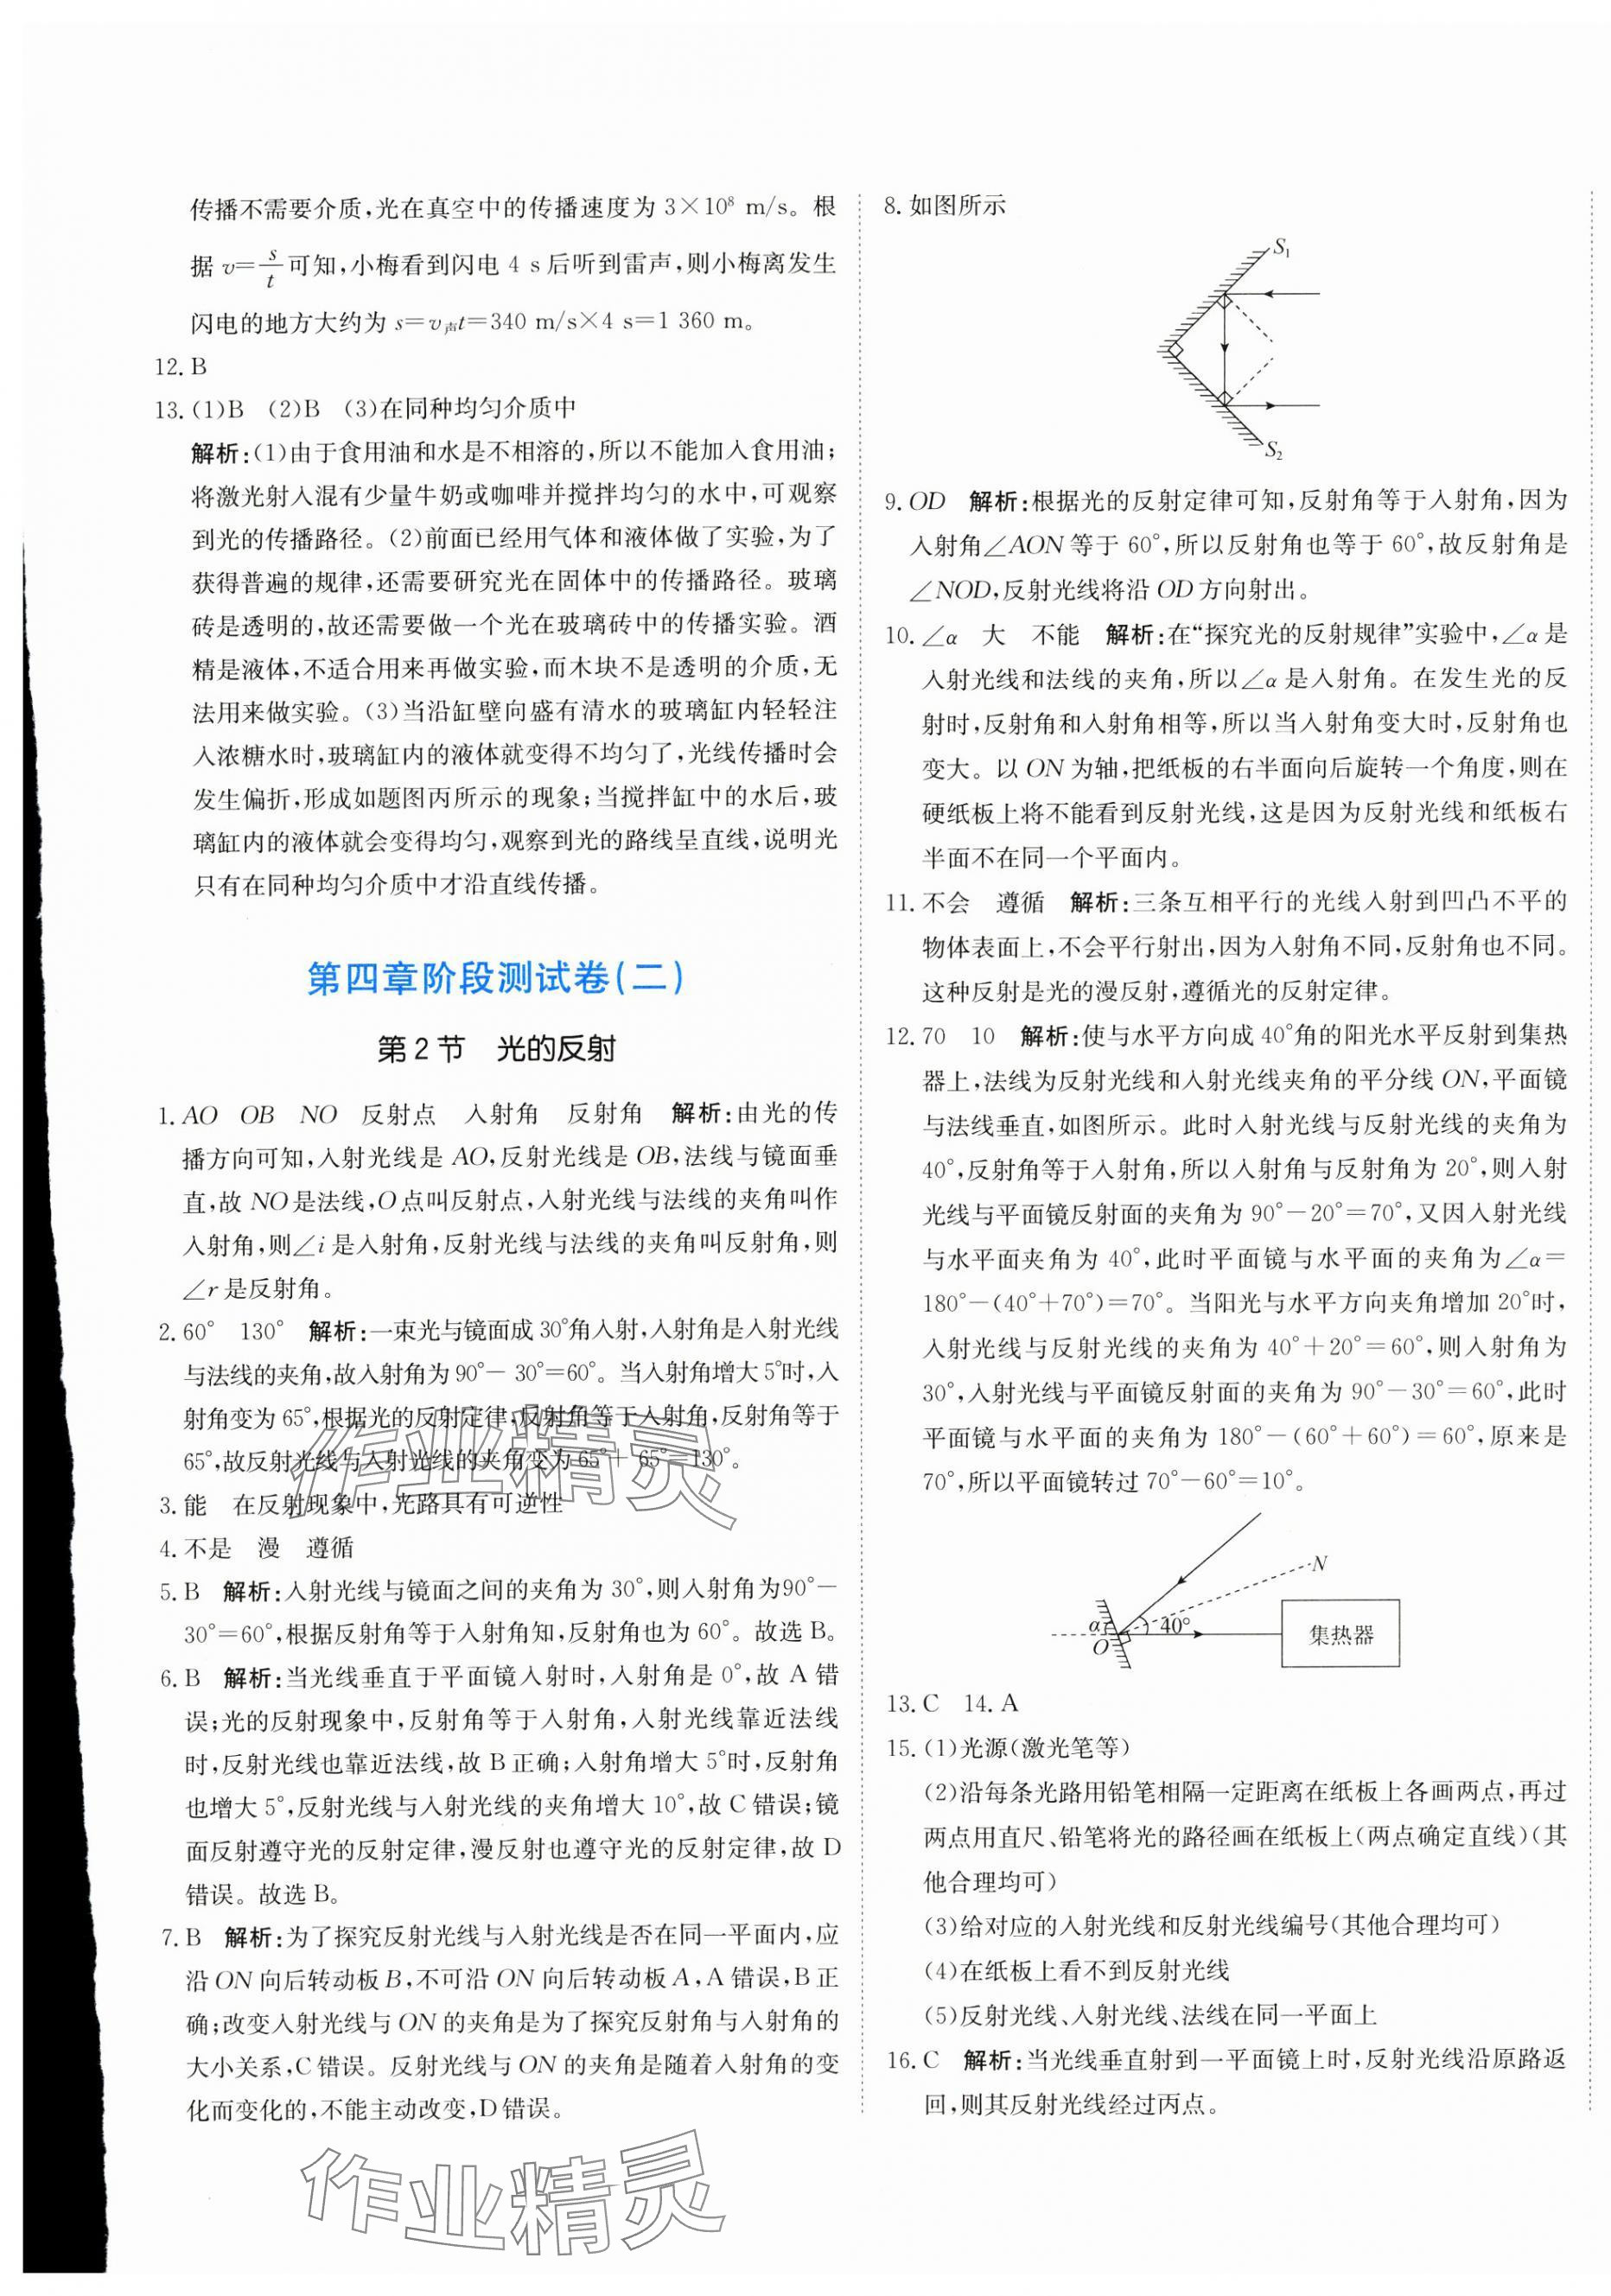 传播不需要介质,光在真空中的传播速度为 3×10⁸ m/s。根
据 v=s/t 可知,小梅看到闪电 4 s 后听到雷声,则小梅离发生
闪电的地方大约为 s=v声t=340 m/s×4 s=1 360 m。
12. B
13. (1)B (2)B (3)在同种均匀介质中
解析:(1)由于食用油和水是不相溶的,所以不能加入食用油;
将激光射入混有少量牛奶或咖啡并搅拌均匀的水中,可观察
到光的传播路径。(2)前面已经用气体和液体做了实验,为了
获得普遍的规律,还需要研究光在固体中的传播路径。玻璃
砖是透明的,故还需要做一个光在玻璃砖中的传播实验。酒
精是液体,不适合用来再做实验,而木块不是透明的介质,无
法用来做实验。(3)当沿缸壁向盛有清水的玻璃缸内轻轻注
入浓糖水时,玻璃缸内的液体就变得不均匀了,光线传播时会
发生偏折,形成如题图丙所示的现象;当搅拌缸中的水后,玻
璃缸内的液体就会变得均匀,观察到光的路线呈直线,说明光
只有在同种均匀介质中才沿直线传播。
第四章阶段测试卷(二)
第2节 光的反射
1. AO OB NO 反射点 入射角 反射角 解析:由光的传
播方向可知,入射光线是 AO,反射光线是 OB,法线与镜面垂
直,故 NO 是法线,O 点叫反射点,入射光线与法线的夹角叫作
入射角,则∠i 是入射角,反射光线与法线的夹角叫反射角,则
∠r 是反射角。
2. 60° 130° 解析:一束光与镜面成30°角入射,入射角是入射光线
与法线的夹角,故入射角为 90°－30°=60°。当入射角增大 5°时,入
射角变为 65°,根据光的反射定律,反射角等于入射角,反射角等于
65°,故反射光线与入射光线的夹角变为 65°＋65°=130°。
3. 能 在反射现象中,光路具有可逆性
4. 不是 漫 遵循
5. B 解析:入射光线与镜面之间的夹角为 30°,则入射角为90°－
30°=60°,根据反射角等于入射角知,反射角也为 60°。故选 B。
6. B 解析:当光线垂直于平面镜入射时,入射角是 0°,故 A 错
误;光的反射现象中,反射角等于入射角,入射光线靠近法线
时,反射光线也靠近法线,故 B 正确;入射角增大 5°时,反射角
也增大 5°,反射光线与入射光线的夹角增大 10°,故 C 错误;镜
面反射遵守光的反射定律,漫反射也遵守光的反射定律,故 D
错误。故选 B。
7. B 解析:为了探究反射光线与入射光线是否在同一平面内,应
沿 ON 向后转动板 B,不可沿 ON 向后转动板 A,A 错误,B 正
确;改变入射光线与 ON 的夹角是为了探究反射角与入射角的
大小关系,C 错误。反射光线与 ON 的夹角是随着入射角的变
化而变化的,不能主动改变,D 错误。
作业精灵
作业精灵
8. 如图所示
S₁
S₂
9. OD 解析:根据光的反射定律可知,反射角等于入射角,因为
入射角∠AON 等于 60°,所以反射角也等于 60°,故反射角是
∠NOD,反射光线将沿 OD 方向射出。
10. ∠α 大 不能 解析:在“探究光的反射规律”实验中,∠α 是
入射光线和法线的夹角,所以∠α 是入射角。在发生光的反
射时,反射角和入射角相等,所以当入射角变大时,反射角也
变大。以 ON 为轴,把纸板的右半面向后旋转一个角度,则在
硬纸板上将不能看到反射光线,这是因为反射光线和纸板右
半面不在同一个平面内。
11. 不会 遵循 解析:三条互相平行的光线入射到凹凸不平的
物体表面上,不会平行射出,因为入射角不同,反射角也不同。
这种反射是光的漫反射,遵循光的反射定律。
12. 70 10 解析:使与水平方向成 40°角的阳光水平反射到集热
器上,法线为反射光线和入射光线夹角的平分线 ON,平面镜
与法线垂直,如图所示。此时入射光线与反射光线的夹角为
40°,反射角等于入射角,所以入射角与反射角为 20°,则入射
光线与平面镜反射面的夹角为 90°－20°=70°,又因入射光线
与水平面夹角为 40°,此时平面镜与水平面的夹角为∠α=
180°－(40°＋70°)=70°。当阳光与水平方向夹角增加 20°时,
入射光线与反射光线的夹角为 40°＋20°=60°,则入射角为
30°,入射光线与平面镜反射面的夹角为 90°－30°=60°,此时
平面镜与水平面的夹角为 180°－(60°＋60°)=60°,原来是
70°,所以平面镜转过 70°－60°=10°。
N
α
40°
O
集热器
13. C 14. A
15. (1)光源(激光笔等)
(2)沿每条光路用铅笔相隔一定距离在纸板上各画两点,再过
两点用直尺、铅笔将光的路径画在纸板上(两点确定直线)(其
他合理均可)
(3)给对应的入射光线和反射光线编号(其他合理均可)
(4)在纸板上看不到反射光线
(5)反射光线、入射光线、法线在同一平面上
16. C 解析:当光线垂直射到一平面镜上时,反射光线沿原路返
回,则其反射光线经过丙点。